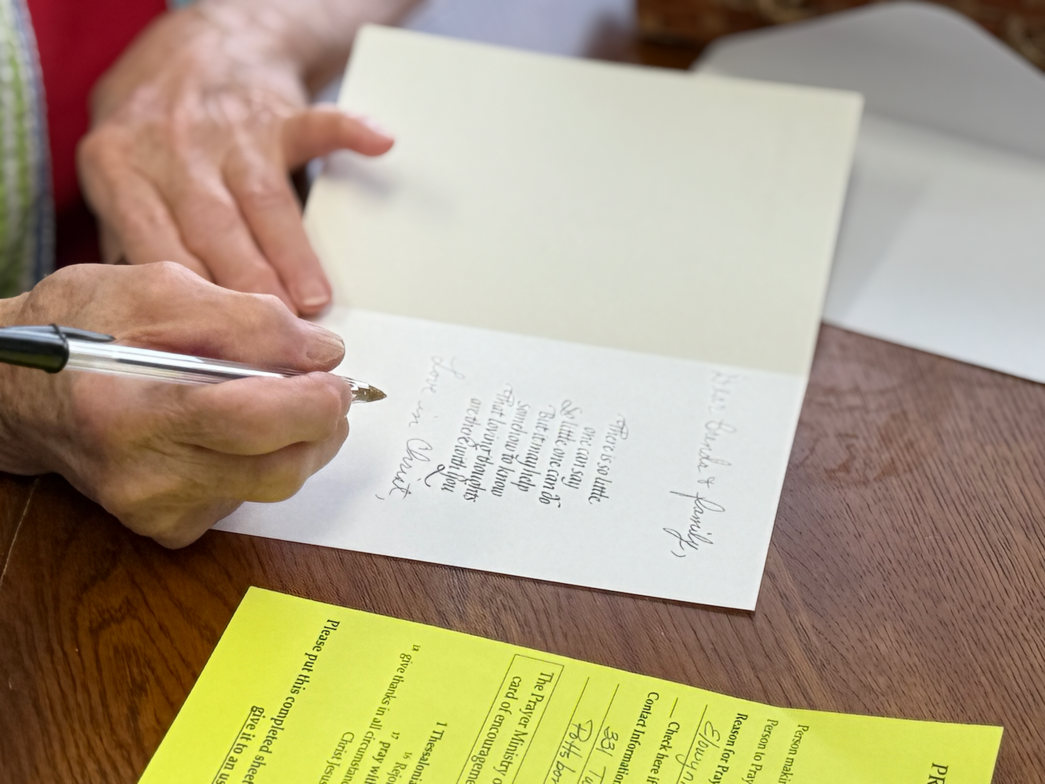 & family,
There is so little
one can say
So little one can do
But it may help
somehow to know
That loving thoughts
are there with you
Love in Christ,
PR
Person maki
Person to Pray
Reason for Pray
Contact Information
Check here i
331
The Prayer Ministry o
card of encourageme
1 Thessaloni
16 Rejo
17 pray wi
18 give thanks in all circumstan
Christ Jesus
Please put this completed sheet
give it to an us